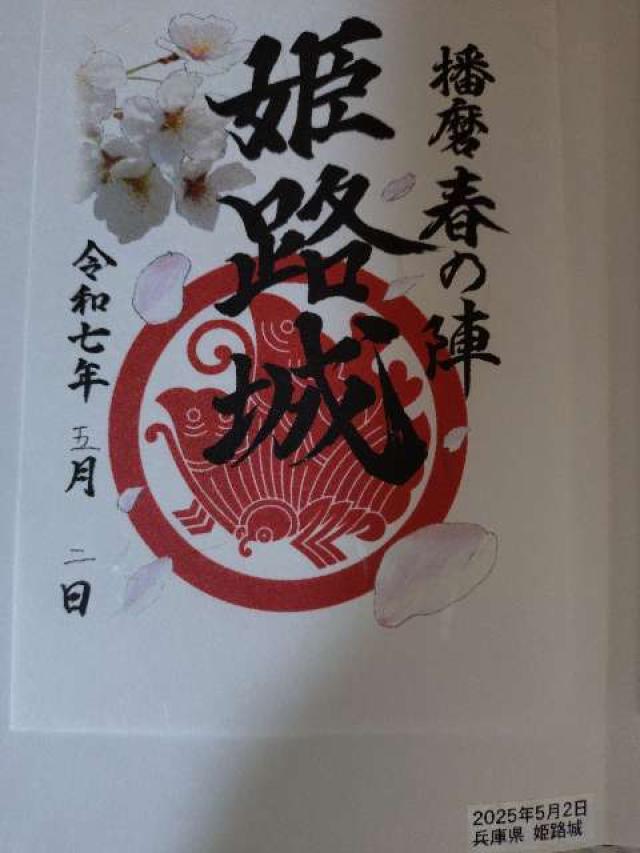 播磨春の陣
姫路城
令和七年 五月 二日
2025年5月2日
兵庫県 姫路城